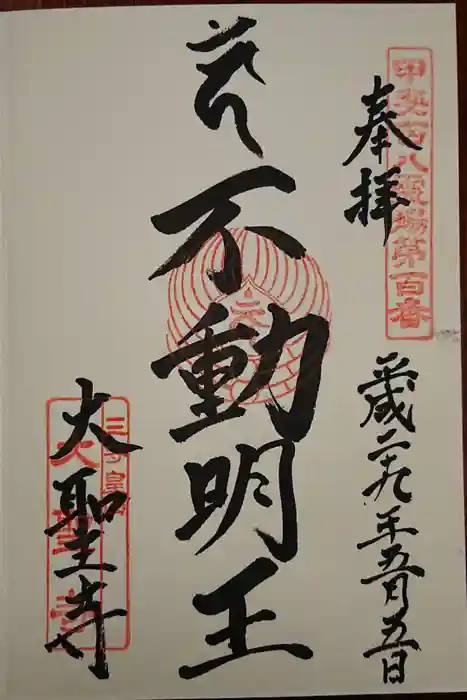 甲斐百八霊場第百番
奉拝
平成二十九年五月五日
不動明王
大聖寺